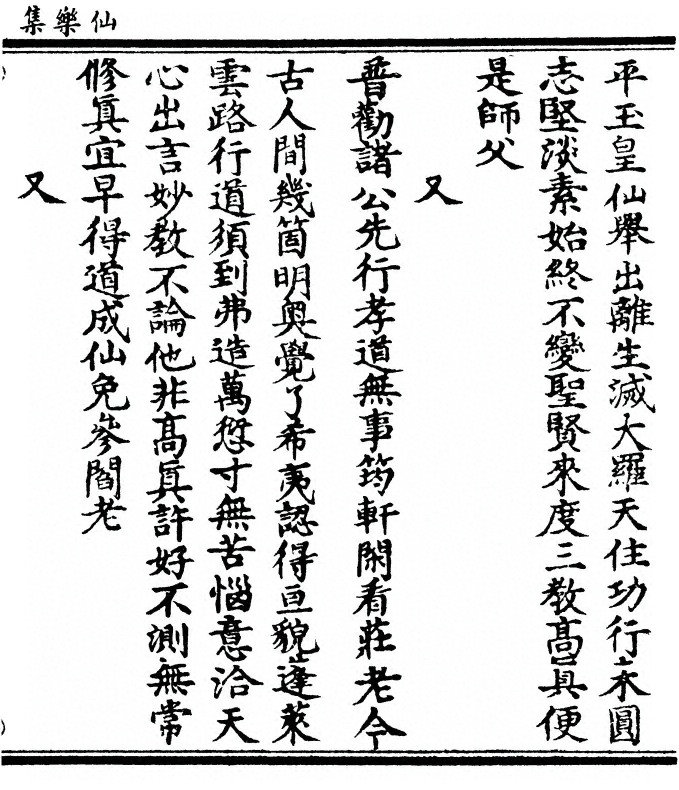 仙樂集
平玉皇仙舉出離生滅大羅天住功行永圓
志堅淡素始終不變聖賢來度三教高眞便
是師父
又
普勸諸公先行孝道無事筠軒閑看莊老今
古人間幾箇明奧覺了希夷認得亘貌蓬萊
雲路行道須到弗造萬愆寸無苦惱意洽天
心出言妙教不論他非高眞許好不測無常
修眞宜早得道成仙免參閻老
又